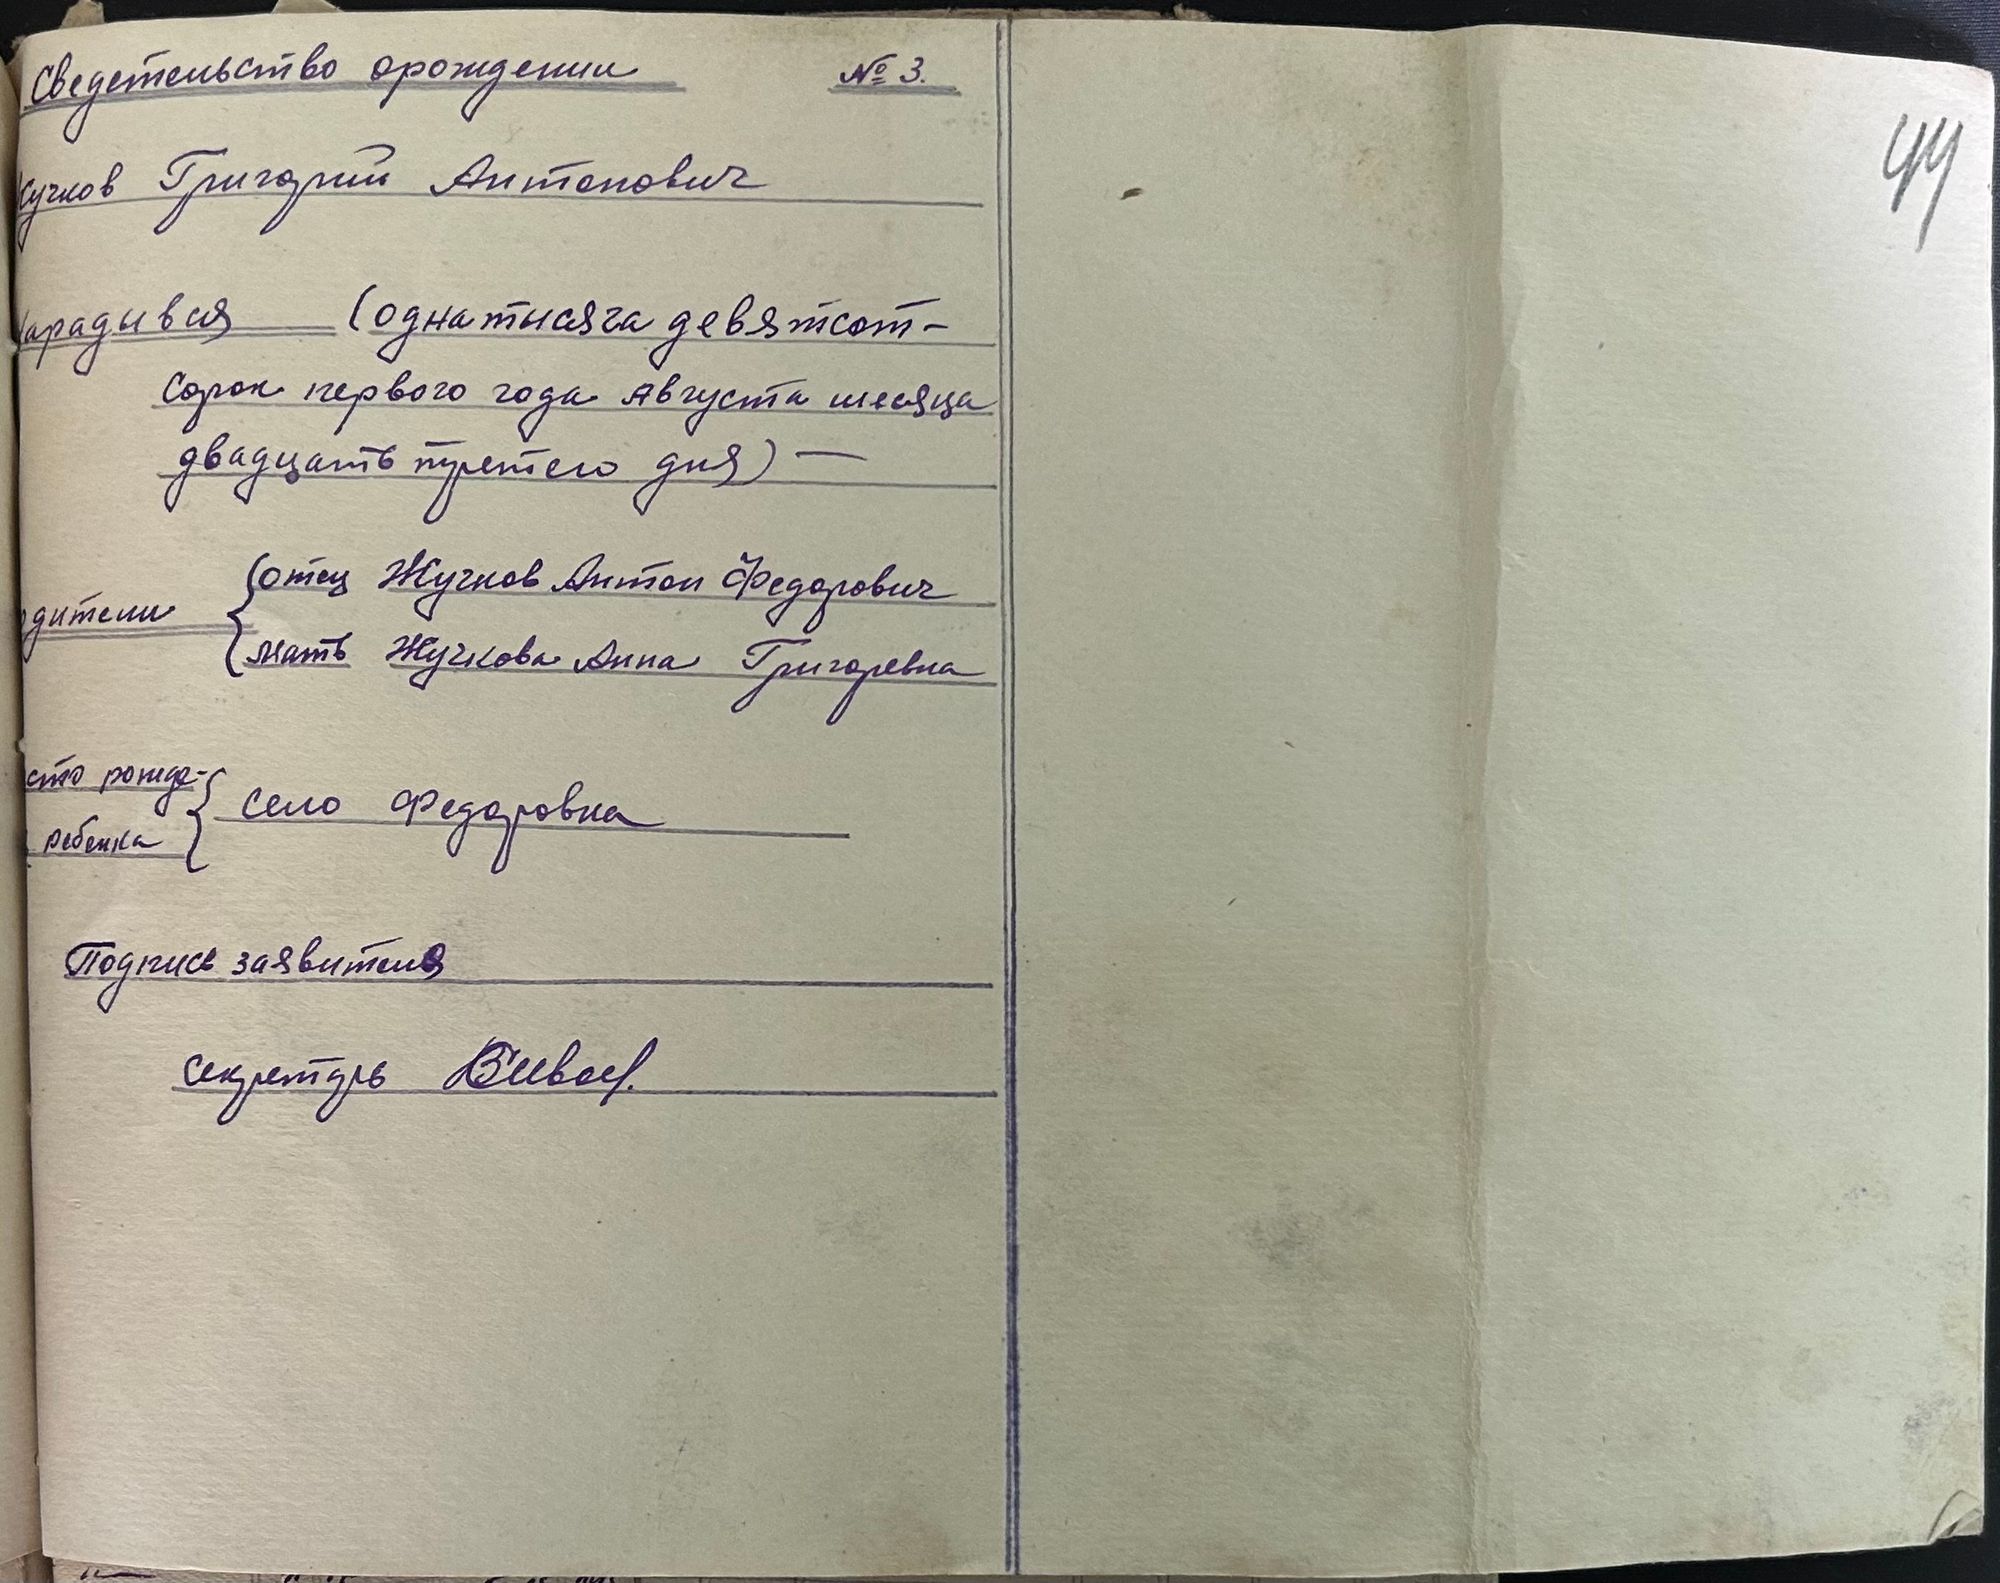 Сведетельство орождении № 3.
44
Жучков Григорий Антонович
Нарадывся (одна тисяча девятсот-
сорок первого года августа месяца
двадцать третего дня) —
одители { отец Жучков Антон Федорович
мать Жучкова Анна Григоревна
сто рожде-
ребенка { село Федоровка
Подпись заявителя
секретарь